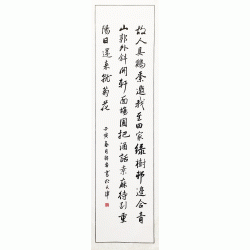 故人具鷄黍邀我至田家綠樹邨邊合青
山郭外斜開軒面場圃把酒話桑麻待到重
陽日還來就菊花
春月書於天津